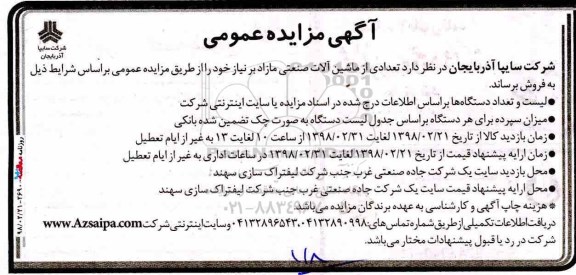 آگهی مزایده عمومی
شرکت سایپا
آذربایجان
شرکت سایپا آذربایجان در نظر دارد تعدادی از ماشین آلات صنعتی مازاد بر نیاز خود را از طریق مزایده عمومی براساس شرایط ذیل
به فروش برساند.
●لیست و تعداد دستگاه‌ها براساس اطلاعات درج شده در اسناد مزایده یا سایت اینترنتی شرکت
●میزان سپرده برای هر دستگاه براساس جدول لیست دستگاه به صورت چک تضمین شده بانکی
●زمان بازدید کالا از تاریخ ۱۳۹۸/۰۲/۲۱ لغایت ۱۳۹۸/۰۲/۳۱ از ساعت ۱۰ لغایت ۱۳ به غیر از ایام تعطیل
●زمان ارایه پیشنهاد قیمت از تاریخ ۱۳۹۸/۰۲/۲۱ لغایت ۱۳۹۸/۰۲/۳۱ در ساعات اداری به غیر از ایام تعطیل
●محل بازدید سایت یک شرکت جاده صنعتی غرب جنب شرکت لیفتراک سازی سهند
●محل ارایه پیشنهاد قیمت سایت یک شرکت جاده صنعتی غرب جنب شرکت لیفتراک سازی سهند
* هزینه چاپ آگهی و کارشناسی به عهده برندگان مزایده می‌باشد.
دریافت اطلاعات تکمیلی از طریق شماره تماس های: ۰۴۱۳۲۸۹۰۹۹۸-۰۴۱۳۲۸۹۶۵۴۳ و سایت اینترنتی شرکت www.Azsaipa.com
شرکت در رد یا قبول پیشنهادات مختار می‌باشد.
۹۸/۰۲/۲۱-۲۶۹۰